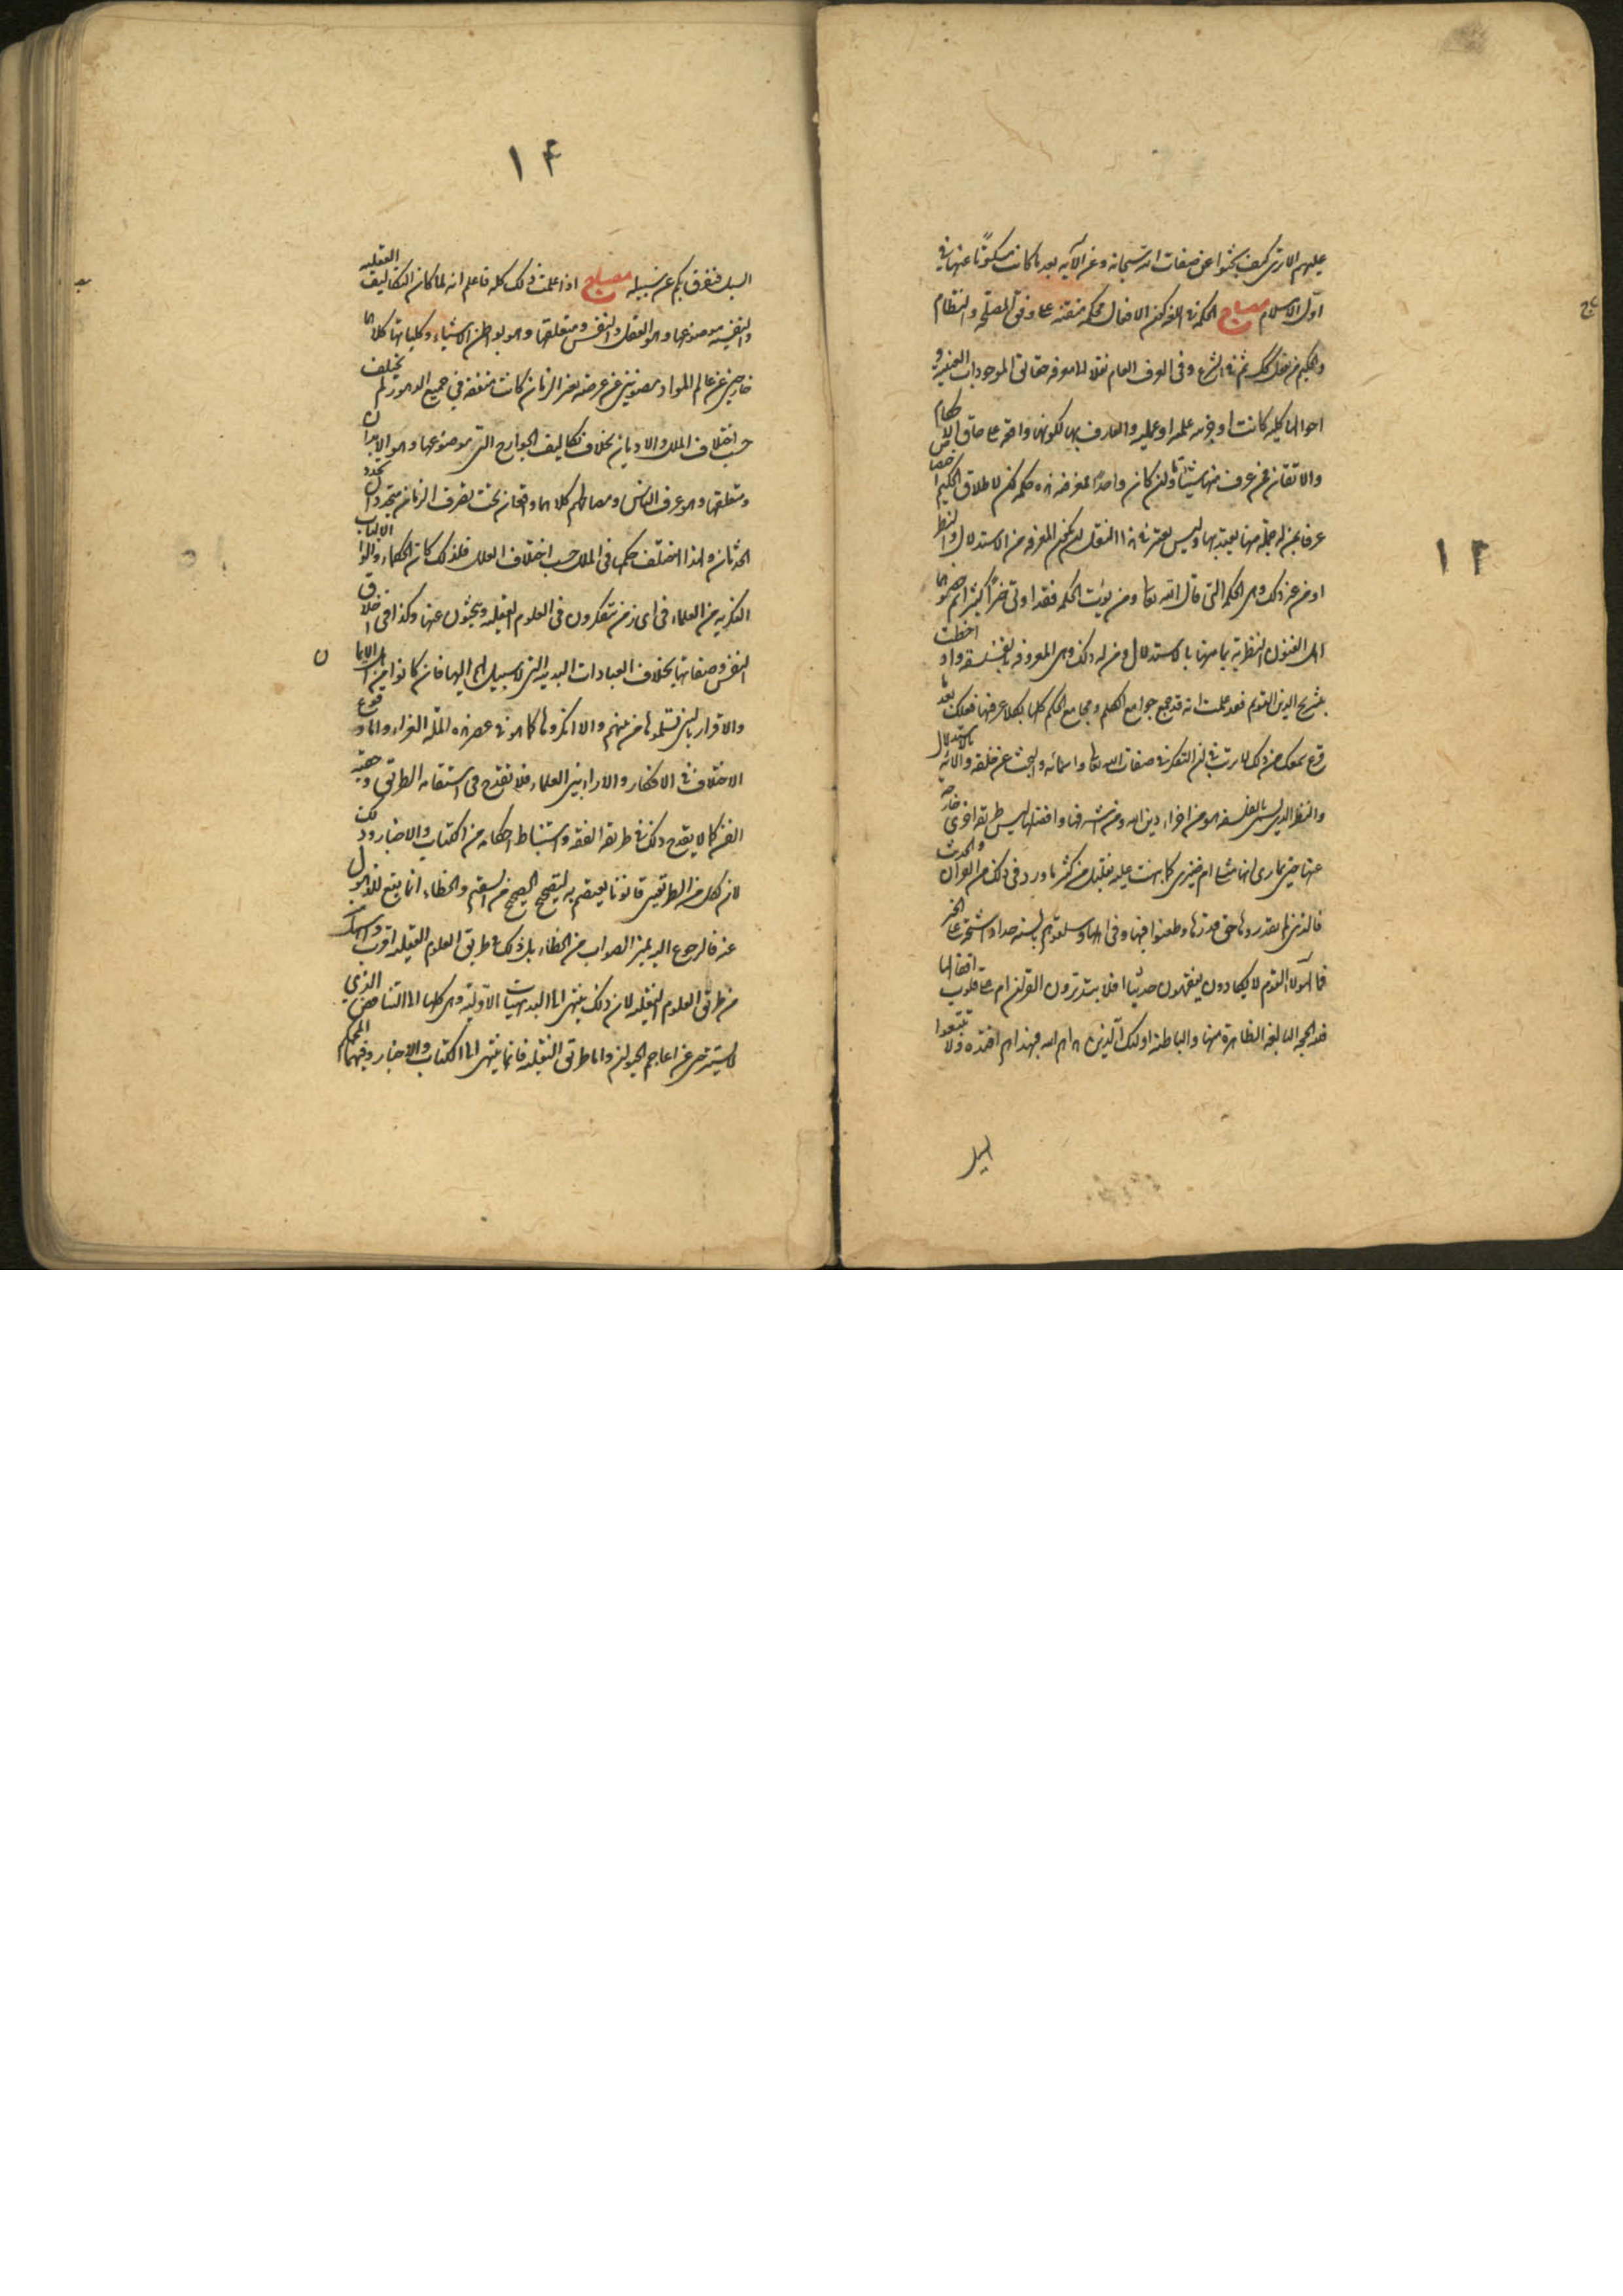 عليهم الا ترى كيف بحثوا عن صفات الله سبحانه وعن آلائه بعد ما كانت مسكوتا عنها في
اول الاسلام مصباح الحكمة في اللغة كون الافعال محكمة متقنة على وفق المصلحة والنظام
والحكيم من فعل كذلك ثم في الشرع وفي العرف العام نقلا الى معرفة حقائق الموجودات العينية و
احوالها كلية كانت او جزئية علمية او عملية والعارف بها لكونها واقعة على حاق الاحكام
والاتقان فمن عرف منها شيئا ما ولو كان واحدا لغرضه هذه حكمة لكن لاطلاق الحكيم اختصاص
عرفا بمن له جملة منها يعتد بها وليس يعتبر في هذا النقل ان يكون المعرفة من الاستدلال والنظر
او من غير ذلك وهي الحكمة التي قال الله تعالى ومن يؤت الحكمة فقد اوتي خيرا كثيرا ثم خصوها
اهل الفنون النظرية بما منها بالاستدلال ومن له ذلك وهي المعروفة بالفلسفة واذ احطت
بتشريح الدين القويم فقد علمت انه قد جمع جوامع الكلم ومجامع الحكم كلها بكلا عرفيها فعلك بعد ما
قرع سمعك من ذلك لا ترتب في ان التفكر في صفات الله تعالى واسمائه والبحث عن خلقه وآلائه بالاستدلال
والنظر الذي يسمى بالفلسفة هو من اجزاء دين الله ومن اشرفها وافضلها ليس طريقة اخرى خارجة
عنها حتى تمارى انها مشا ام ضيزى كما نبهت عليه بقليل من كثير ما ورد في ذلك من القرآن والحديث
فالذين لم يقدروها حق قدرها وطعنوا فيها وفي اهلها وسلقوهم بالسنة حداد اشحة على الخير
فما لهؤلاء القوم لا يكادون يفقهون حديثا افلا يتدبرون القرآن ام على قلوب اقفالها
فلله الحجة البالغة الظاهرة منها والباطنة اولئك الذين هداهم الله فبهداهم اقتده ولا تتبعوا
السبل
١٣
١٤
السبل فتفرق بكم عن سبيله مصباح اذا علمت ذلك كله فاعلم انه لما كان التكاليف العقلية
والنفسية موضوعها وهو العقل والنفس ومتعلقها وهو بواطن الاشياء وكلياتها كلاهما
خارجين عن عالم المواد مصونين عن عرضة تغير الزمان كانت متفقة في جميع الدهور لم تختلف
حسب اختلاف الملل والاديان بخلاف تكاليف الجوارح التي موضوعها وهو الابدان
ومتعلقها وهو عرف الناس ومعاملاتهم كلاهما واقعان تحت تصرف الزمان متجددان تجدد
الحدثان ولهذا اختلف حكمها في الملل حسب اختلاف العلل فلذلك كانت الحكماء واولوا الالباب
الفكرية من العلماء في اي زمن يتفكرون في العلوم العقلية ويبحثون عنها وكذا في اخلاق
النفس وصفاتها بخلاف العبادات البدنية التي لا سبيل لهم اليها فان كانوا من اهل الايمان
والاقرار بالنبي تسلموها من نبيهم والا انكروها كما هو في عصر هذه الملة الغراء واما وقوع
الاختلاف في الافكار والآراء بين العلماء فلا يقدح في استقامة الطريق وحقية
الفن كما لا يقدح ذلك في طريقة الفقه واستنباط احكامه من الكتاب والاخبار وذلك
لان لكل من الطريقين قانونا يعتصم به ليتضح الصحيح من السقيم والخطاء انما يقع للذهول
عنه فالرجوع اليه يميز الصواب من الخطاء بل ذلك في طريق العلوم العقلية اقرب واسهل
من طرق العلوم النقلية لان ذلك ينتهي الى البديهيات الاولية وهي كلها الى التناقض الذي
لا يستتر حتى عن اعاجم الحيوان واما طرق النقلية فانما ينتهي الى الكتاب والاخبار وفيهما المحكم